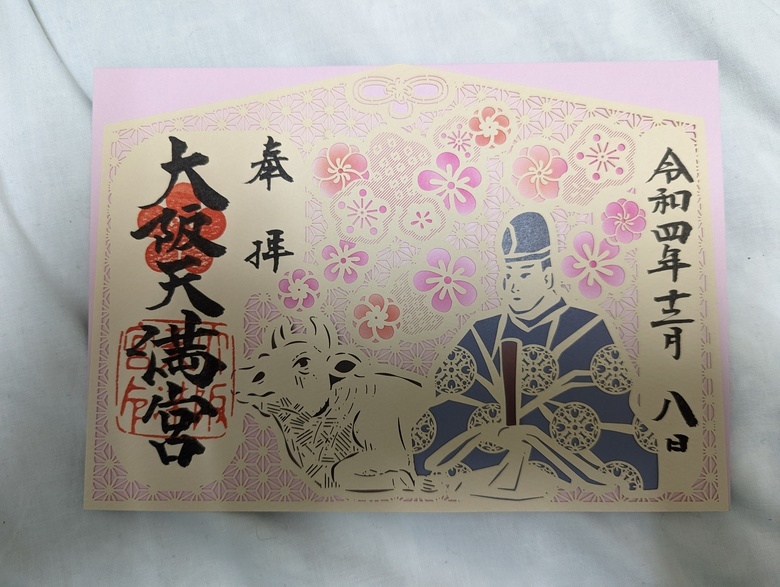 令和四年十二月 八日
奉拝
大阪天満宮